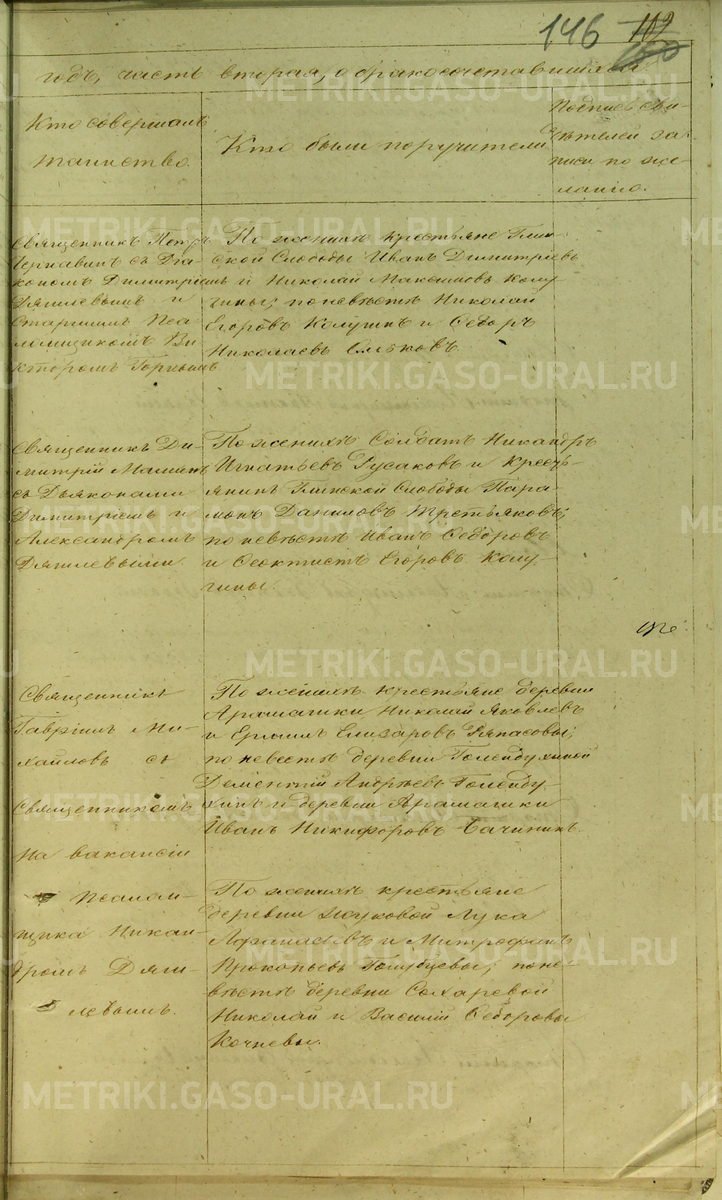 146 112
годъ, часть вторая, о бракосочетавшихся
Кто совершалъ
таинство.
Кто были поручители
Подпись сви-
дѣтелей за-
писи по же-
ланію.
Священникъ Петръ
съ Діа-
кономъ Димитріемъ
Дягилевымъ и
Старшимъ Пса-
ломщикомъ Ви-
кторомъ
По женихѣ крестьяне Глин-
ской Слободы Иванъ Димитріевъ
и Николай Максимовъ Колу-
гины; по невѣстѣ Николай
Егоровъ Колугинъ и Ѳедоръ
Николаевъ
Священникъ Ди-
митрій Маминъ
съ Дьяконами
Димитріемъ и
Александромъ
Дягилевыми.
По женихѣ Солдатъ Никандръ
Игнатьевъ Русаковъ и Кресть-
янинъ Глинской Слободы Пара-
монъ Даниловъ Третьяковъ;
по невѣстѣ Иванъ Ѳедоровъ
и Ѳеоктистъ Егоровъ Колу-
гины.
Священникъ
Гавріилъ Ми-
хайловъ съ
Священникомъ
на вакансіи
Псалом-
щика Никан-
дромъ Дяги-
левымъ.
По женихѣ крестьяне деревни
Арамашки Николай Яковлевъ
и Ермилъ Елизаровъ
по невѣстѣ деревни Голендухиной
Дементій Андреевъ Голенду-
хинъ и деревни Арамашки
Иванъ Никифоровъ Бачининъ.
По женихѣ крестьяне
деревни Лука
и Митрофанъ
Прокопьевъ Голубцовы; по не-
вѣстѣ деревни Сохаревой
Николай и Василій Ѳедоровы
Кочневы.
METRIKI.GASO-URAL.RU